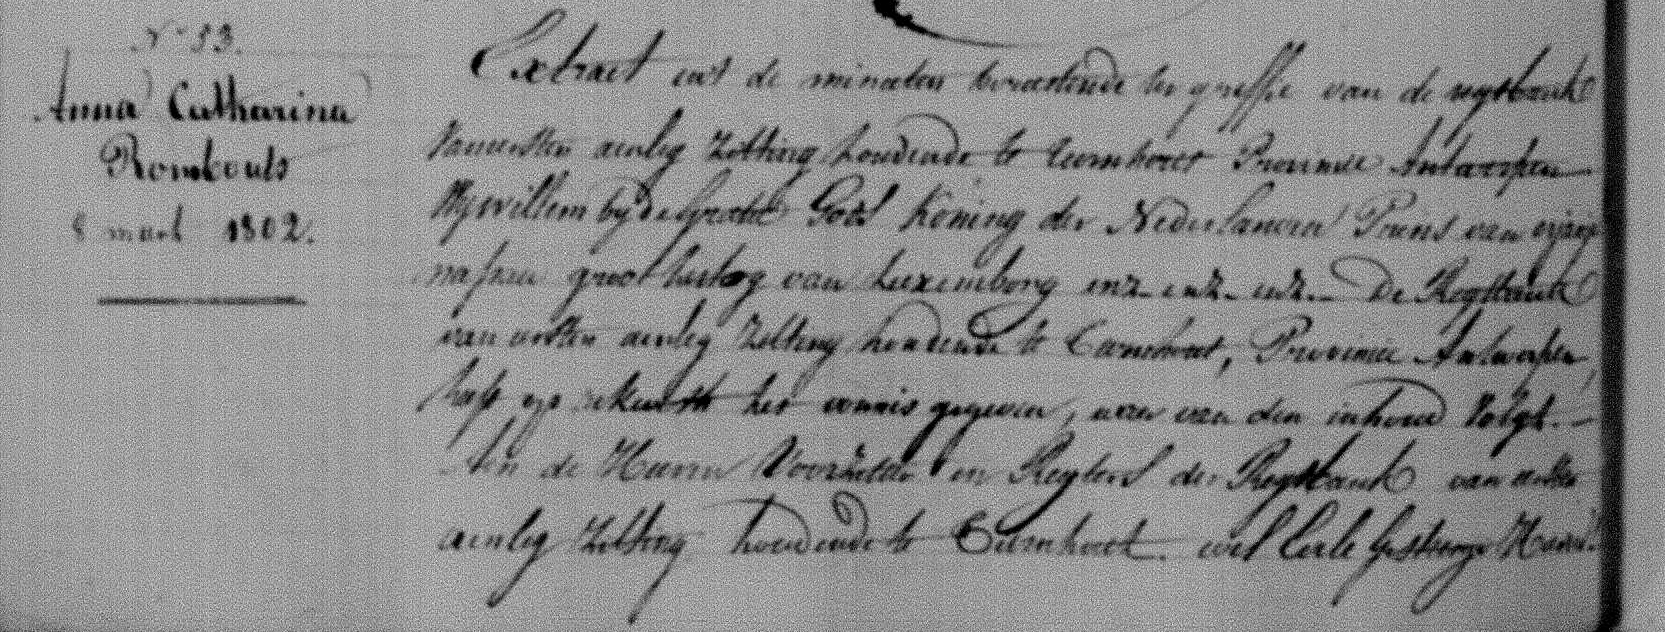 N° 53.
Anna Catharina
Rombouts
8 maart 1802.
Extract uit de minuten berustende ter greffie van de regtbank
van eersten aenleg zitting houdende te Turnhout Provincie Antwerpen
Wy willem by de gratie Gods Koning der Nederlanden Prins van oranje
nassau groot hertog van Luxemborg enz. enz. enz. De Regtbank
van eersten aenleg zitting houdende te Turnhout, Provincie Antwerpen,
heeft op het vonnis gegeven, waer van den inhoud volgt.
Aen de Heeren Voorzitter en Regters der Regtbank van eersten
aenleg zitting houdende te Turnhout. wel Edele Heeren